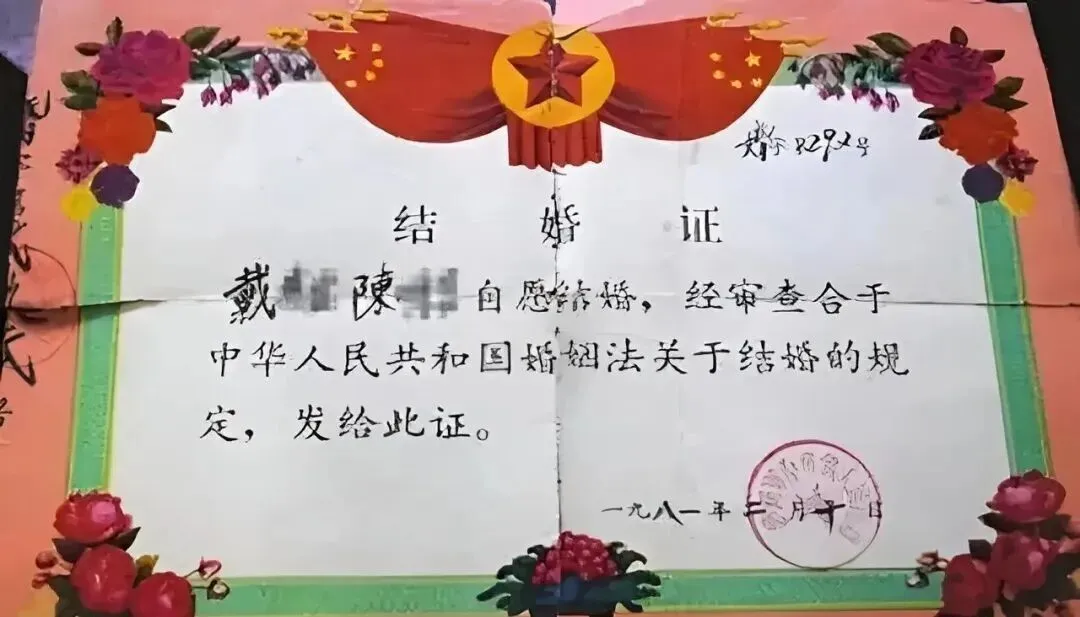 结婚证
戴 陳 自愿结婚，经审查合于
中华人民共和国婚姻法关于结婚的规
定，发给此证。
一九八一年二月十日